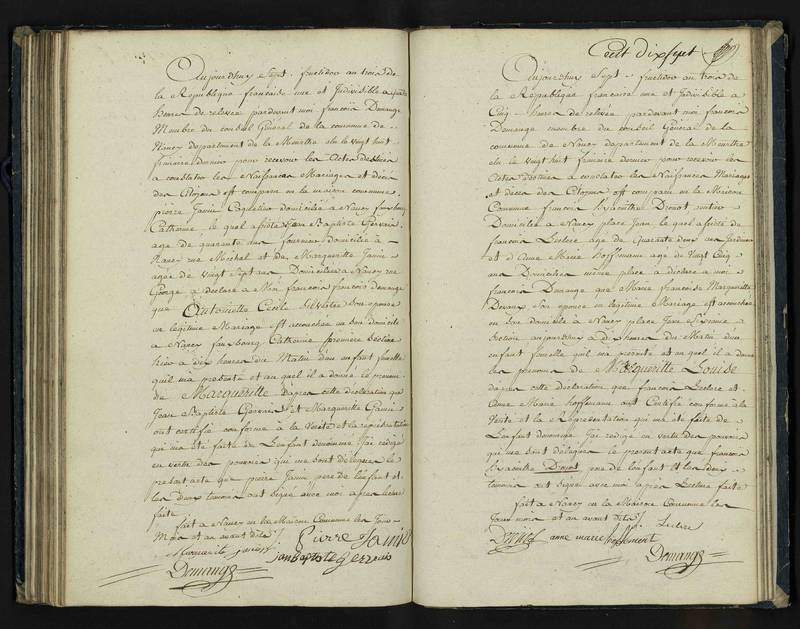 Aujourdhuy Sept fructidor an trois de
la Republique francaise une et Indivisible a quatre
heures de relevée pardevant moi francois Domange
Membre du conseil Général de la commune de
Nancy departement de la Meurthe elu le vingt huit
frimaire dernier pour recevoir les Actes destinés
a constater les Naissances Mariages et décès
des Citoyens est comparu en la maison commune
pierre Jamin domicilié a Nancy fauxbourg
Catherine, le quel assisté Jean Baptiste Gervais
age de quarante ans fournier domicilié a
Nancy rue et de Marguerite Jamin
agée de vingt sept ans Domiciliée a Nancy rue
George a déclaré a Moi francois Domange
que Antoinette Cecile son epouse
en légitime Mariage est accouchée en son domicile
a Nancy fauxbourg Catherine premiere Section
hier a dix heures du Matin d'un enfant femelle
quil m'a présenté et au quel il a donné le prenom
de Marguerite Dapres cette déclaration que
Jean Baptiste Gervais et Marguerite Jamin
ont certifié conforme a la Verité et la représentation
qui m'a été faite de Lenfant denommé J'ai redigé
en vertu des pouvoirs qui me sont délégués le
présent acte que pierre Jamin pere de lenfant et
les deux temoins ont signé avec moi apres lecture
faite
fait a Nancy en la Maison Commune les Jour
Mois et an avant dits
Marguerite Jamin Pierre Jamin
Jean Baptiste Gervais
Domange
Cent dix Sept
Aujourdhuy Sept fructidor an trois de
la République francaise une et Indivisible a
Cinq heures de relevée pardevant moi francois
Domange membre du conseil Général de la
commune de Nancy departement de la Meurthe
elu le vingt huit frimaire dernier pour recevoir les
Actes destinés a constater les Naissances Mariages
et décès des Citoyens est comparu en la Maison
Commune francois Hyacinthe Drouot
Domicilié a Nancy place Jean, le quel assisté de
francois Leclerc age de Quarante deux ans Jardinier
et d'Anne Marie Hoffmann age de Vingt Cinq
ans Domiciliés même place a déclaré a moi
francois Domange que Marie francoise Marguerite
Son epouse en légitime Mariage est accouchée
en son domicile a Nancy place Jean Sixieme
Section aujourdhuy a dix heures du Matin d'un
enfant femelle quil m'a présenté et au quel il a donné
les prenoms de Marguerite Louise
dapres cette déclaration que francois Leclerc et
Anne Marie Hoffmann ont Certifié conforme a la
Verité et la Représentation qui m'a été faite de
Lenfant denommé J'ai redigé en vertu des pouvoirs
qui me sont délégués le présent acte que francois
Hyacinthe Drouot pere de lenfant et les deux
temoins ont signé avec moi apres Lecture faite
fait a Nancy en la Maison Commune les
Jour mois et an avant dits Leclerc
anne marie
Domange